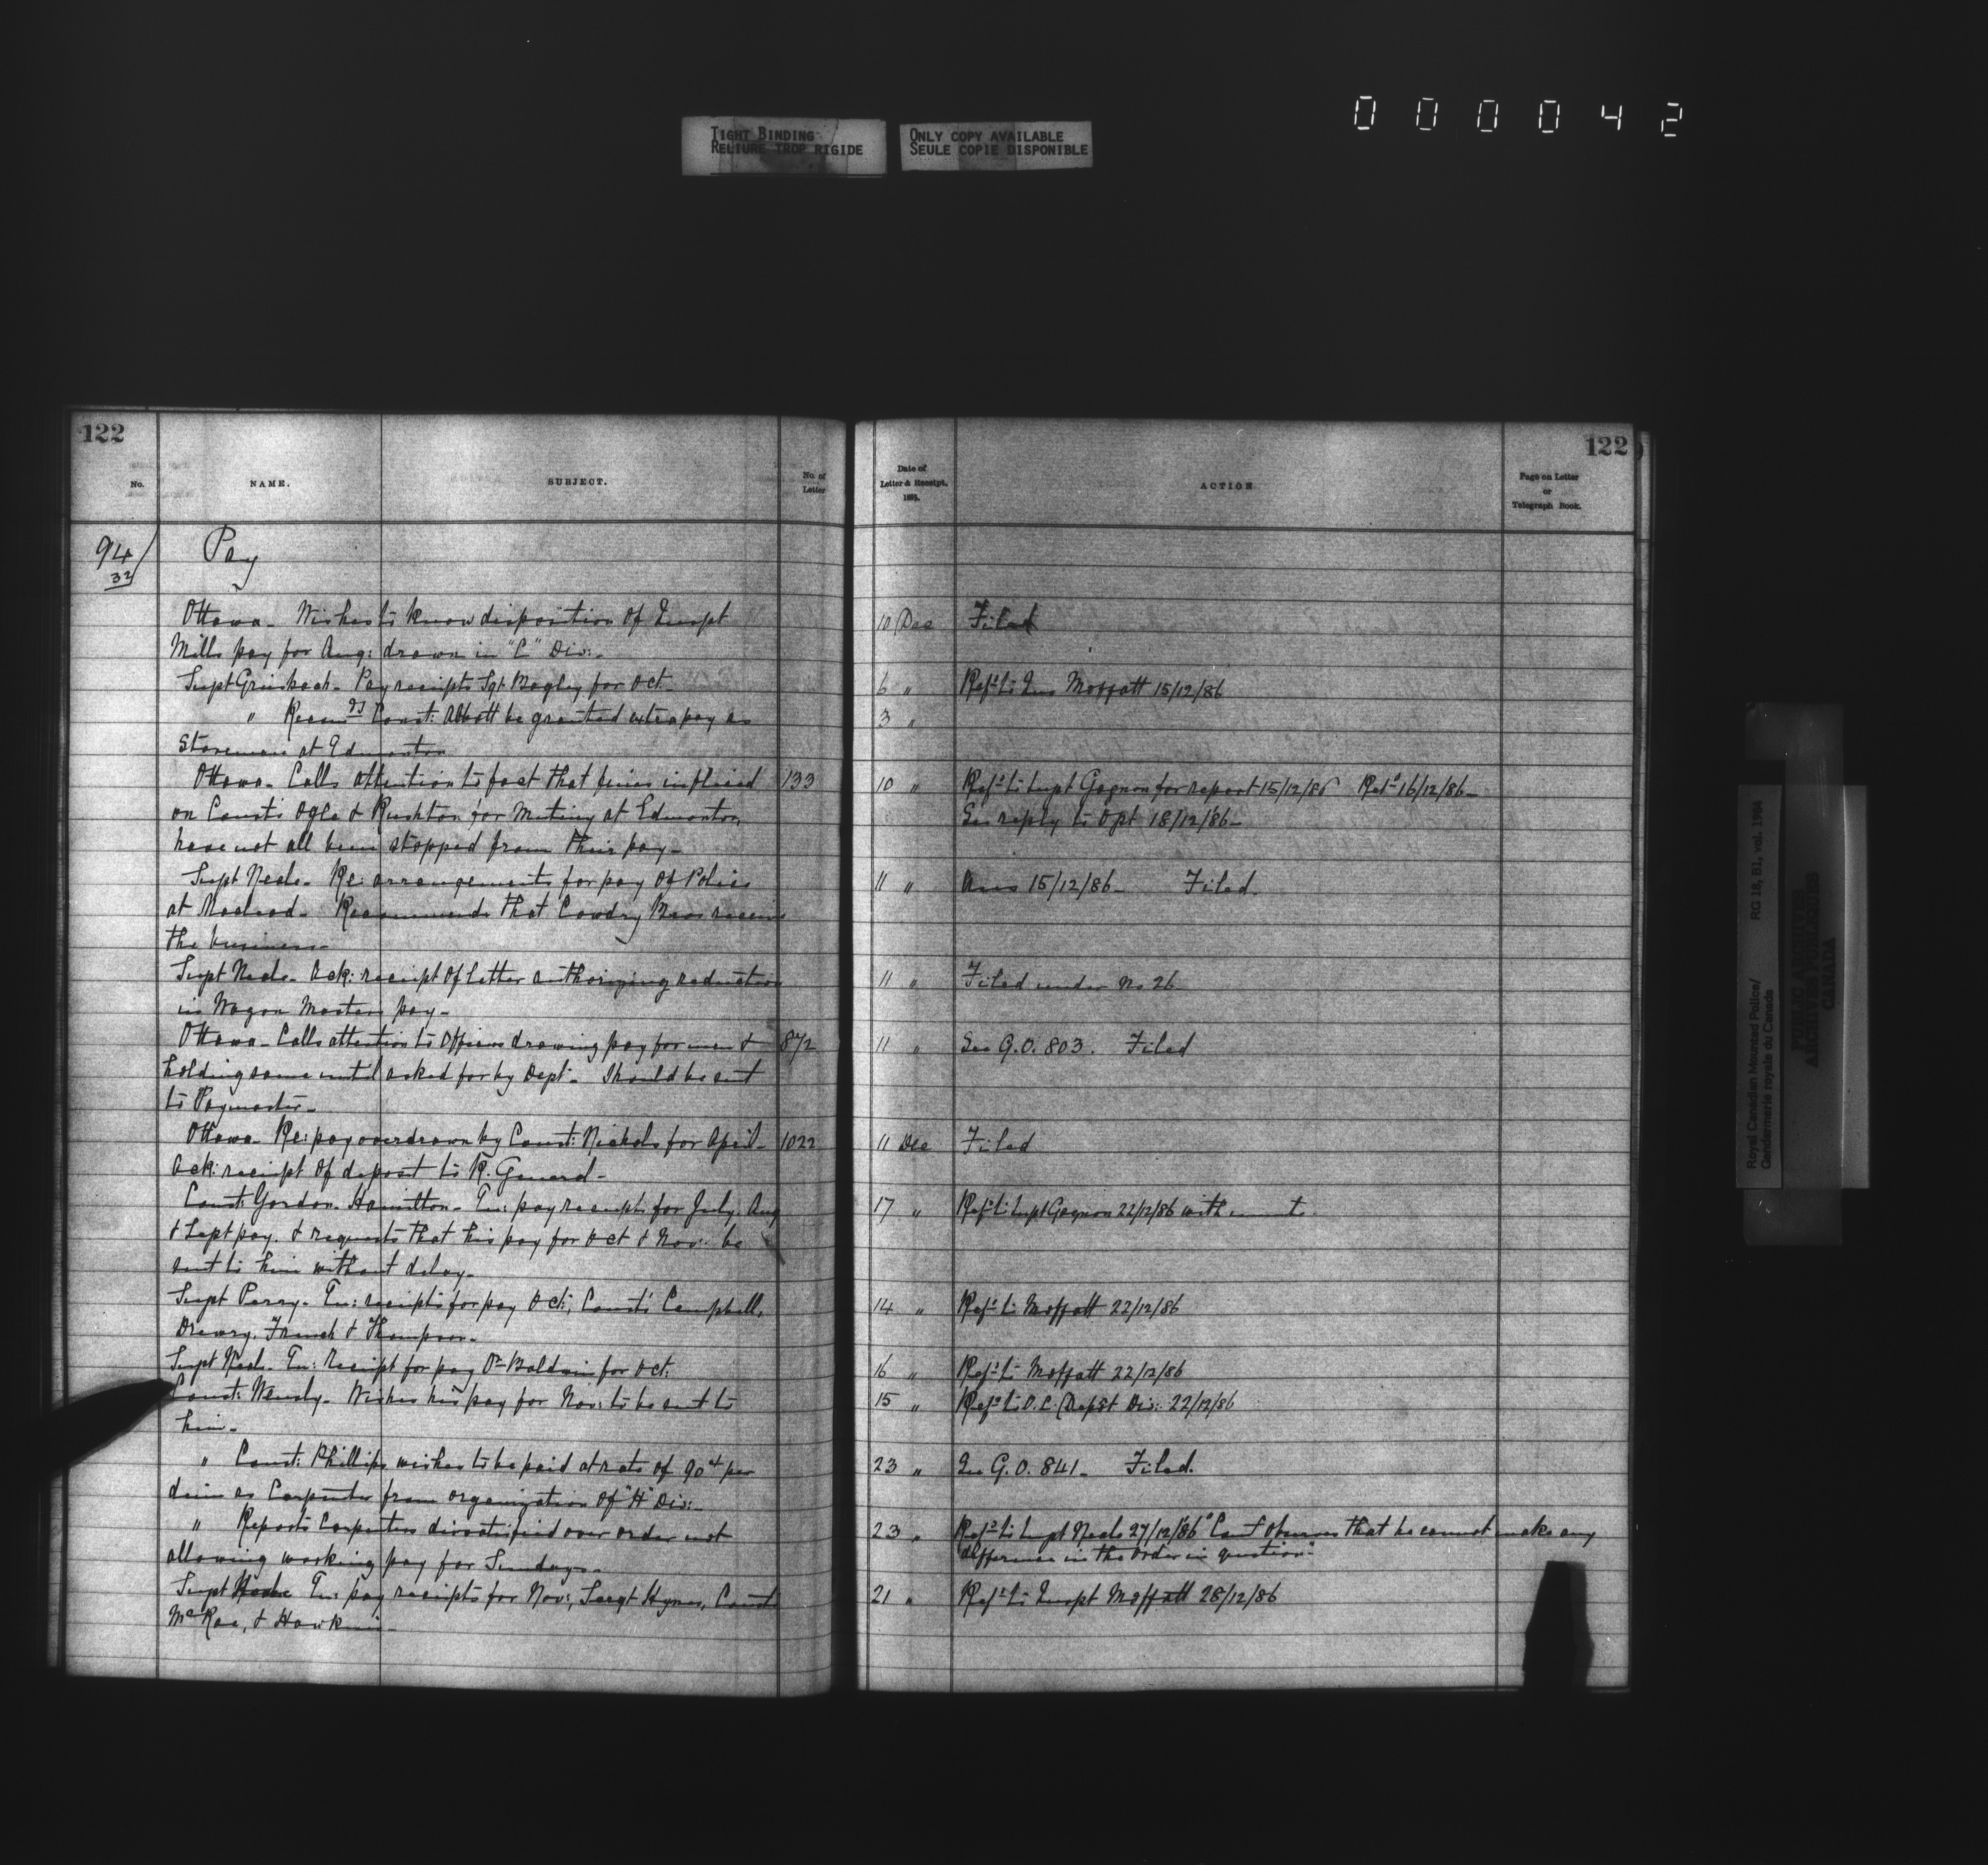 000042
TIGHT BINDING
RELIURE TROP RIGIDE
ONLY COPY AVAILABLE
SEULE COPIE DISPONIBLE
122
No.
NAME.
SUBJECT.
No. of
Letter
94/
32
Pay
Ottawa - Wishes to know disposition of Inspt
Mills pay for Aug: drawn in "C" Div:-
Supt Griesbach - Pay receipts Sgt. Bagley for Oct.
" Recomds Const: Abbott be granted extra pay as
Storeman at Edmonton
Ottawa - Calls attention to fact that fines inflicted 133
on Consts Ogle & Rushton for Mutiny at Edmonton,
have not all been stopped from their pay -
Supt Neale - Re: arrangements for pay of Police
at Macleod - Recommends that Cowdry Bros receive
the business -
Supt Neale - Ack: receipt of letter authorizing reduction
in Wagon Masters pay -
Ottawa - Calls attention to Officers drawing pay for men & 872
holding same until asked for by Dept - Should be sent
to Paymaster -
Ottawa - Re: pay overdrawn by Const: Nichols for April - 1022
Ack: receipt of deposit to R. General -
Const: Gordon - Hamilton - En: pay receipts for July, Aug
& Sept pay. & requests that his pay for Oct & Nov: be
sent to him without delay -
Supt Perry - En: receipts for pay Oct:, Consts Campbell,
Drewry, French & Thompson -
Supt Neale - En: Receipt for pay Dr Baldwin for Oct:
Const: Wendy - Wishes his pay for Nov: to be sent to
him -
" Const: Phillips wishes to be paid at rate of 90 cts per
diem as Carpenter from organization of "H" Div: -
" Reports Carpenters dissatisfied over order not
allowing working pay for Sundays -
Supt Neale En: pay receipts for Nov:, Sergt Hynes, Consts
McRae, & Hawkins -
122
Date of
Letter & Receipt,
1885.
ACTION
Page on Letter
or
Telegraph Book.
10 Dec Filed
6 " Refd to Ins Moffatt 15/12/86
3 "
10 " Refd to Supt Gagnon for report 15/12/86 Retd 16/12/86 -
See reply to Dpt 18/12/86 -
11 " Ans 15/12/86 - Filed.
11 " Filed under No 26
11 " See G.O. 803. Filed
11 Dec Filed
17 " Refd to Supt Gagnon 22/12/86 with
14 " Refd to Moffatt 22/12/86
16 " Refd to Moffatt 22/12/86
15 " Refd to O.C. Depot Div: 22/12/86
23 " See G.O. 841 - Filed.
23 " Refd to Supt Neale 27/12/86 "Comr observes that he cannot make any
difference in the order in question"
21 " Refd to Inspt Moffatt 28/12/86
Royal Canadian Mounted Police/ RG 18, B1, vol. 1984
Gendarmerie royale du Canada
PUBLIC ARCHIVES
ARCHIVES PUBLIQUES
CANADA